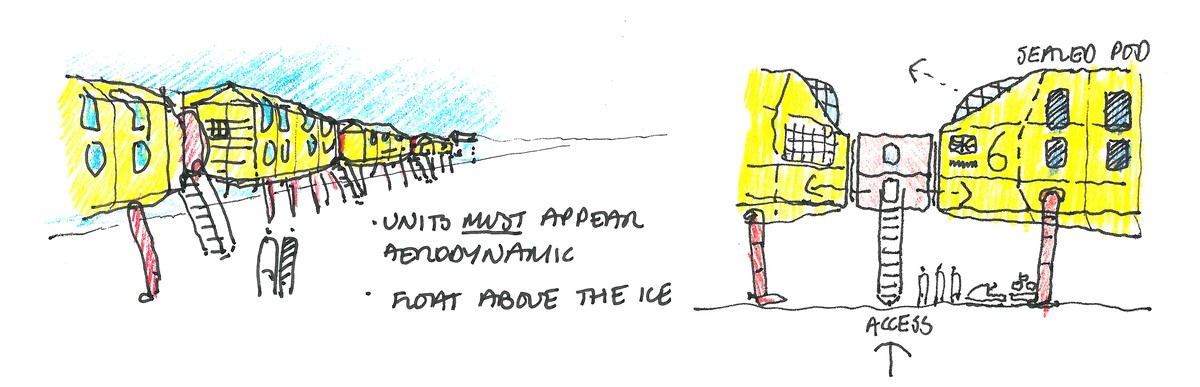 · UNITS MUST APPEAR
AERODYNAMIC
· FLOAT ABOVE THE ICE
SEALED POD
6
ACCESS